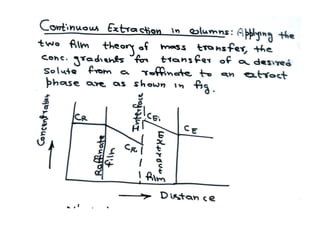 Continuous Extraction in columns: Applying the
two film theory of mass transfer, the
conc. gradients for transfer of a desired
solute from a raffinate to an extract
phase are as shown in fig.
Concentration
CR
Raffinate
film
CRi
Interface
CEi
Extract
film
CE
Distance